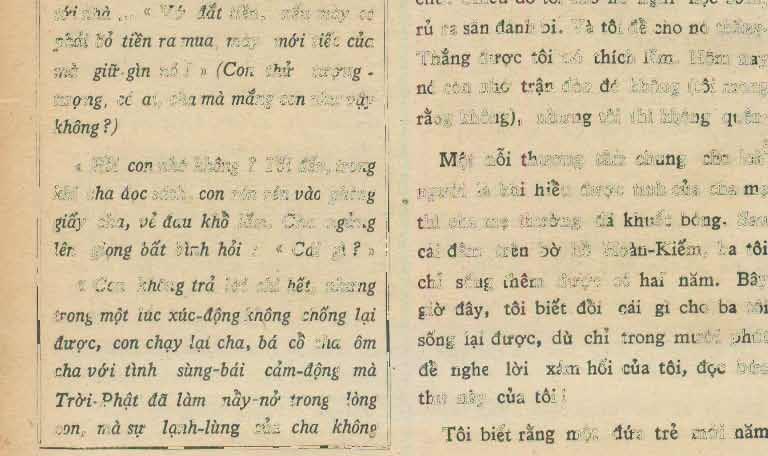 tới nhà ... « Vở đắt tiền, nếu mày có
phải bỏ tiền ra mua, mày mới tiếc của
mà giữ-gìn nó ! » (Con thử tượng-
tượng, có ai, cha mà mắng con như vậy
không ?)
« Hồi con nhớ không ? Tối đến, trong
khi cha đọc sách, con rón rén vào phòng
giấy cha, vẻ đau khổ lắm. Cha ngửng
lên giọng bất bình hỏi : « Cái gì ? »
« Con không trả lời chi hết, nhưng
trong một lúc xúc-động không chống lại
được, con chạy lại cha, bá cổ cha ôm
cha với tình sùng-bái cảm-động mà
Trời-Phật đã làm nầy-nở trong lòng
con, mà sự lạnh-lùng của cha không
rủ ra sân đánh bi. Và tôi để cho nó thắng.
Thắng được tôi nó thích lắm. Hôm nay
nó còn nhớ trận đòn đó không (tôi mong
rằng không), nhưng tôi thì không quên
Một nỗi thương tâm chung cho loài
người là khi hiểu được tình của cha mẹ
thì cha mẹ thường đã khuất bóng. Sau
cái đêm trên bờ hồ Hoàn-Kiếm, ba tôi
chỉ sống thêm được có hai năm. Bây
giờ đây, tôi biết đổi cái gì cho ba tôi
sống lại được, dù chỉ trong mười phút
để nghe lời xám hối của tôi, đọc bức
thư này của tôi !
Tôi biết rằng một đứa trẻ mười năm